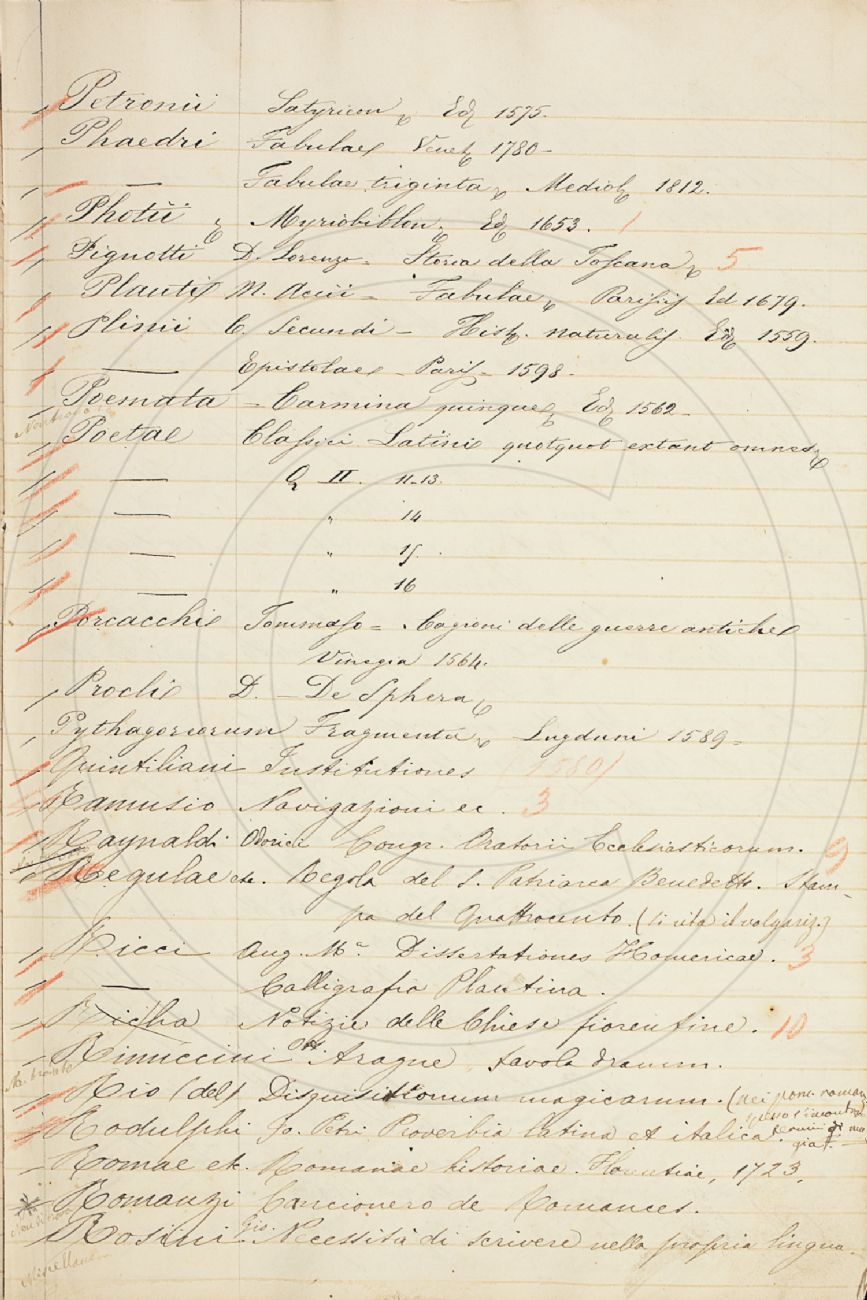 Petronii Satyricon, Ed. 1575.
Phaedri Fabulae Venet. 1780 -
— Fabulae triginta, Mediol. 1812.
Photii, Myriobiblon, Ed. 1653. 1
Pignotti D. Lorenzo = Storia della Toscana, 5
Plauti M. Accii = Fabulae, Parisiis Ed 1679.
Plinii C. Secundi - Hist. naturalis. Ed. 1559.
— Epistolae - Paris - 1598 -
Poemata - Carmina quinque, Ed. 1562 -
Poetae Classici Latini quotquot extant omnes,
— Q II. 11-13.
— " 14
— " 15.
— " 16
Porcacchi Tommaso = Cagioni delle guerre antiche
Vinegia 1564.
Procli D. - De Sphera,
Pythagoreorum Fragmenta, Lugduni 1589 =
Quintiliani Institutiones 1580/
Ramusio Navigazioni ec. 3
Raynaldi Odorici Congr. Oratorii Ecclesiasticorum. 9
Regulae etc. Regola del S. Patriarca Benedetto. Stam-
pa del Quattrocento. (Si cita il volgariz.)
Ricci Aug. Ma. Dissertationes Homericae. 3
— Calligrafia Plautina.
Richa Notizie delle Chiese fiorentine. 10
Rinuccini Ott. favola dramm.
Rio (del) Disquisitionum magicarum. (nei
Rodulphi Jo. Petri Proverbia latina et italica.
gia). —
Romae etc. Romanae historiae. Florentiae, 1723.
Romanzi Cancionero de Romances.
Rosini Gio. Necessità di scrivere nella propria lingua.
Miscellanea